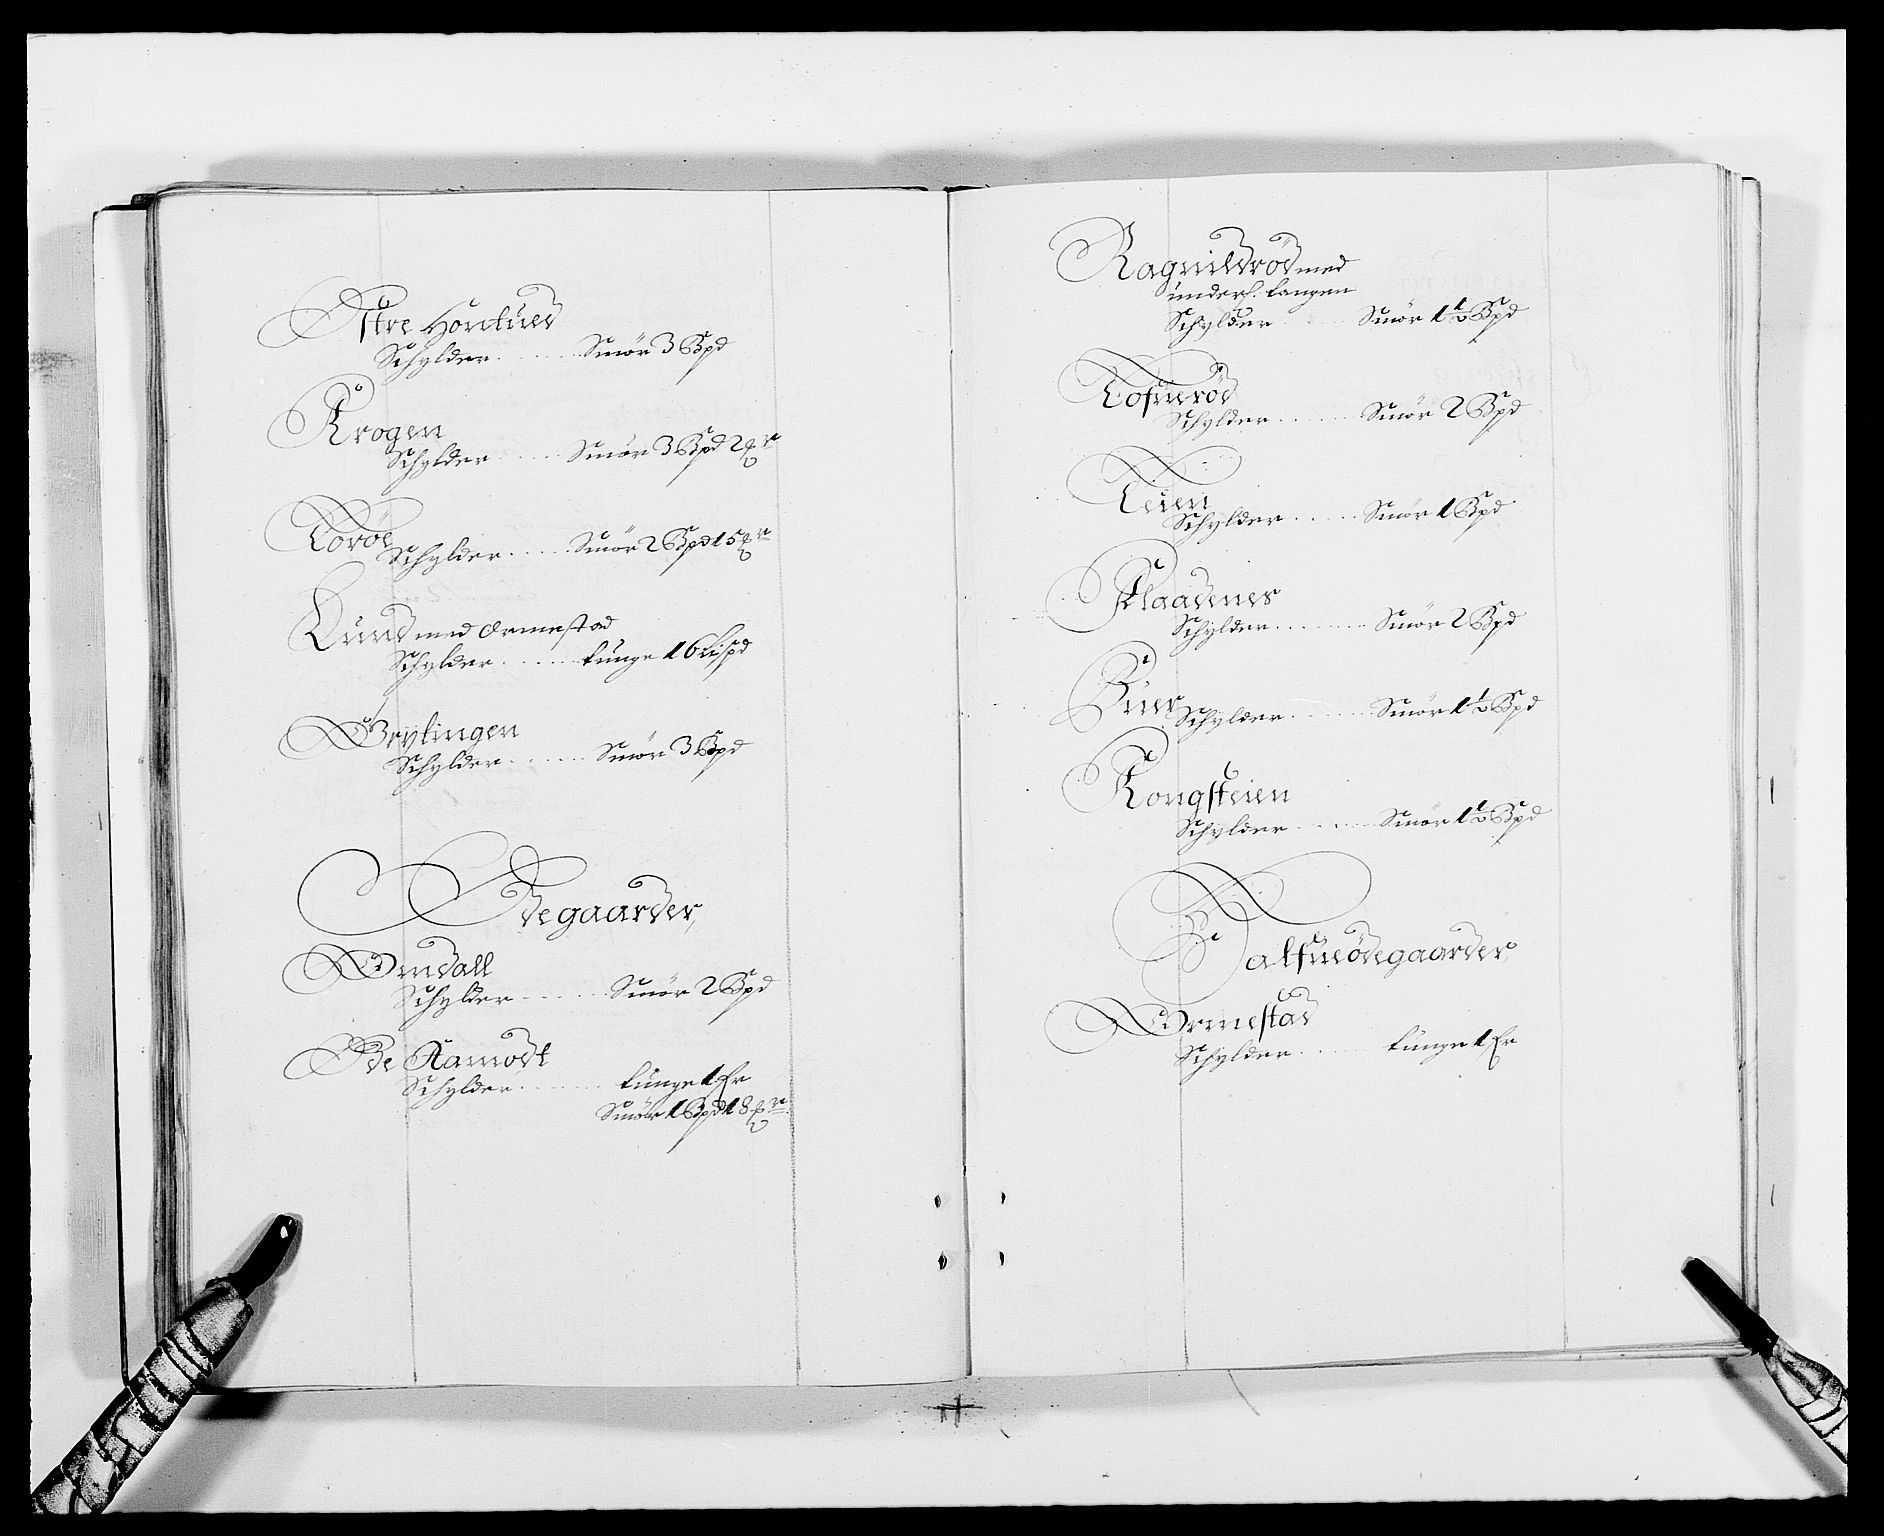 Østre Hontued
Schylder . . . . . . Smör 3 Bpd
Krogen
Schylder . . . . . Smör 3 Bpd 2 
Toröe
Schylder . . . . . Smör 2 Bpd 15 
Lund med Ormestad
Schylder . . . . . . tunge 1 6 Lispd
Grytingen
Schylder . . . . . . Smör 3 Bpd
Ødegaarder
Omdall
Schylder . . . . . . Smör 2 Bpd
Øde Aamodt
Schylder . . . . . . tunge 1 Fr
Smör 1 Bpd 18 
Ragnildröd med
underl. tangen
Schylder . . . . . Smör 1 1/2 Bpd
Tofueröd
Schylder . . . . . . Smör 2 Bpd
Teien
Schylder . . . . . Smör 1 Bpd
Klaadenes
Schylder . . . . . . . Smör 2 Bpd
Buer
Schylder . . . . . . Smör 1 1/2 Bpd
Kongsteien
Schylder . . . . . . Smör 1 1/2 Bpd
Halfueödegaarder
Ormestad
Schylder . . . . . . tunge 1 Fr